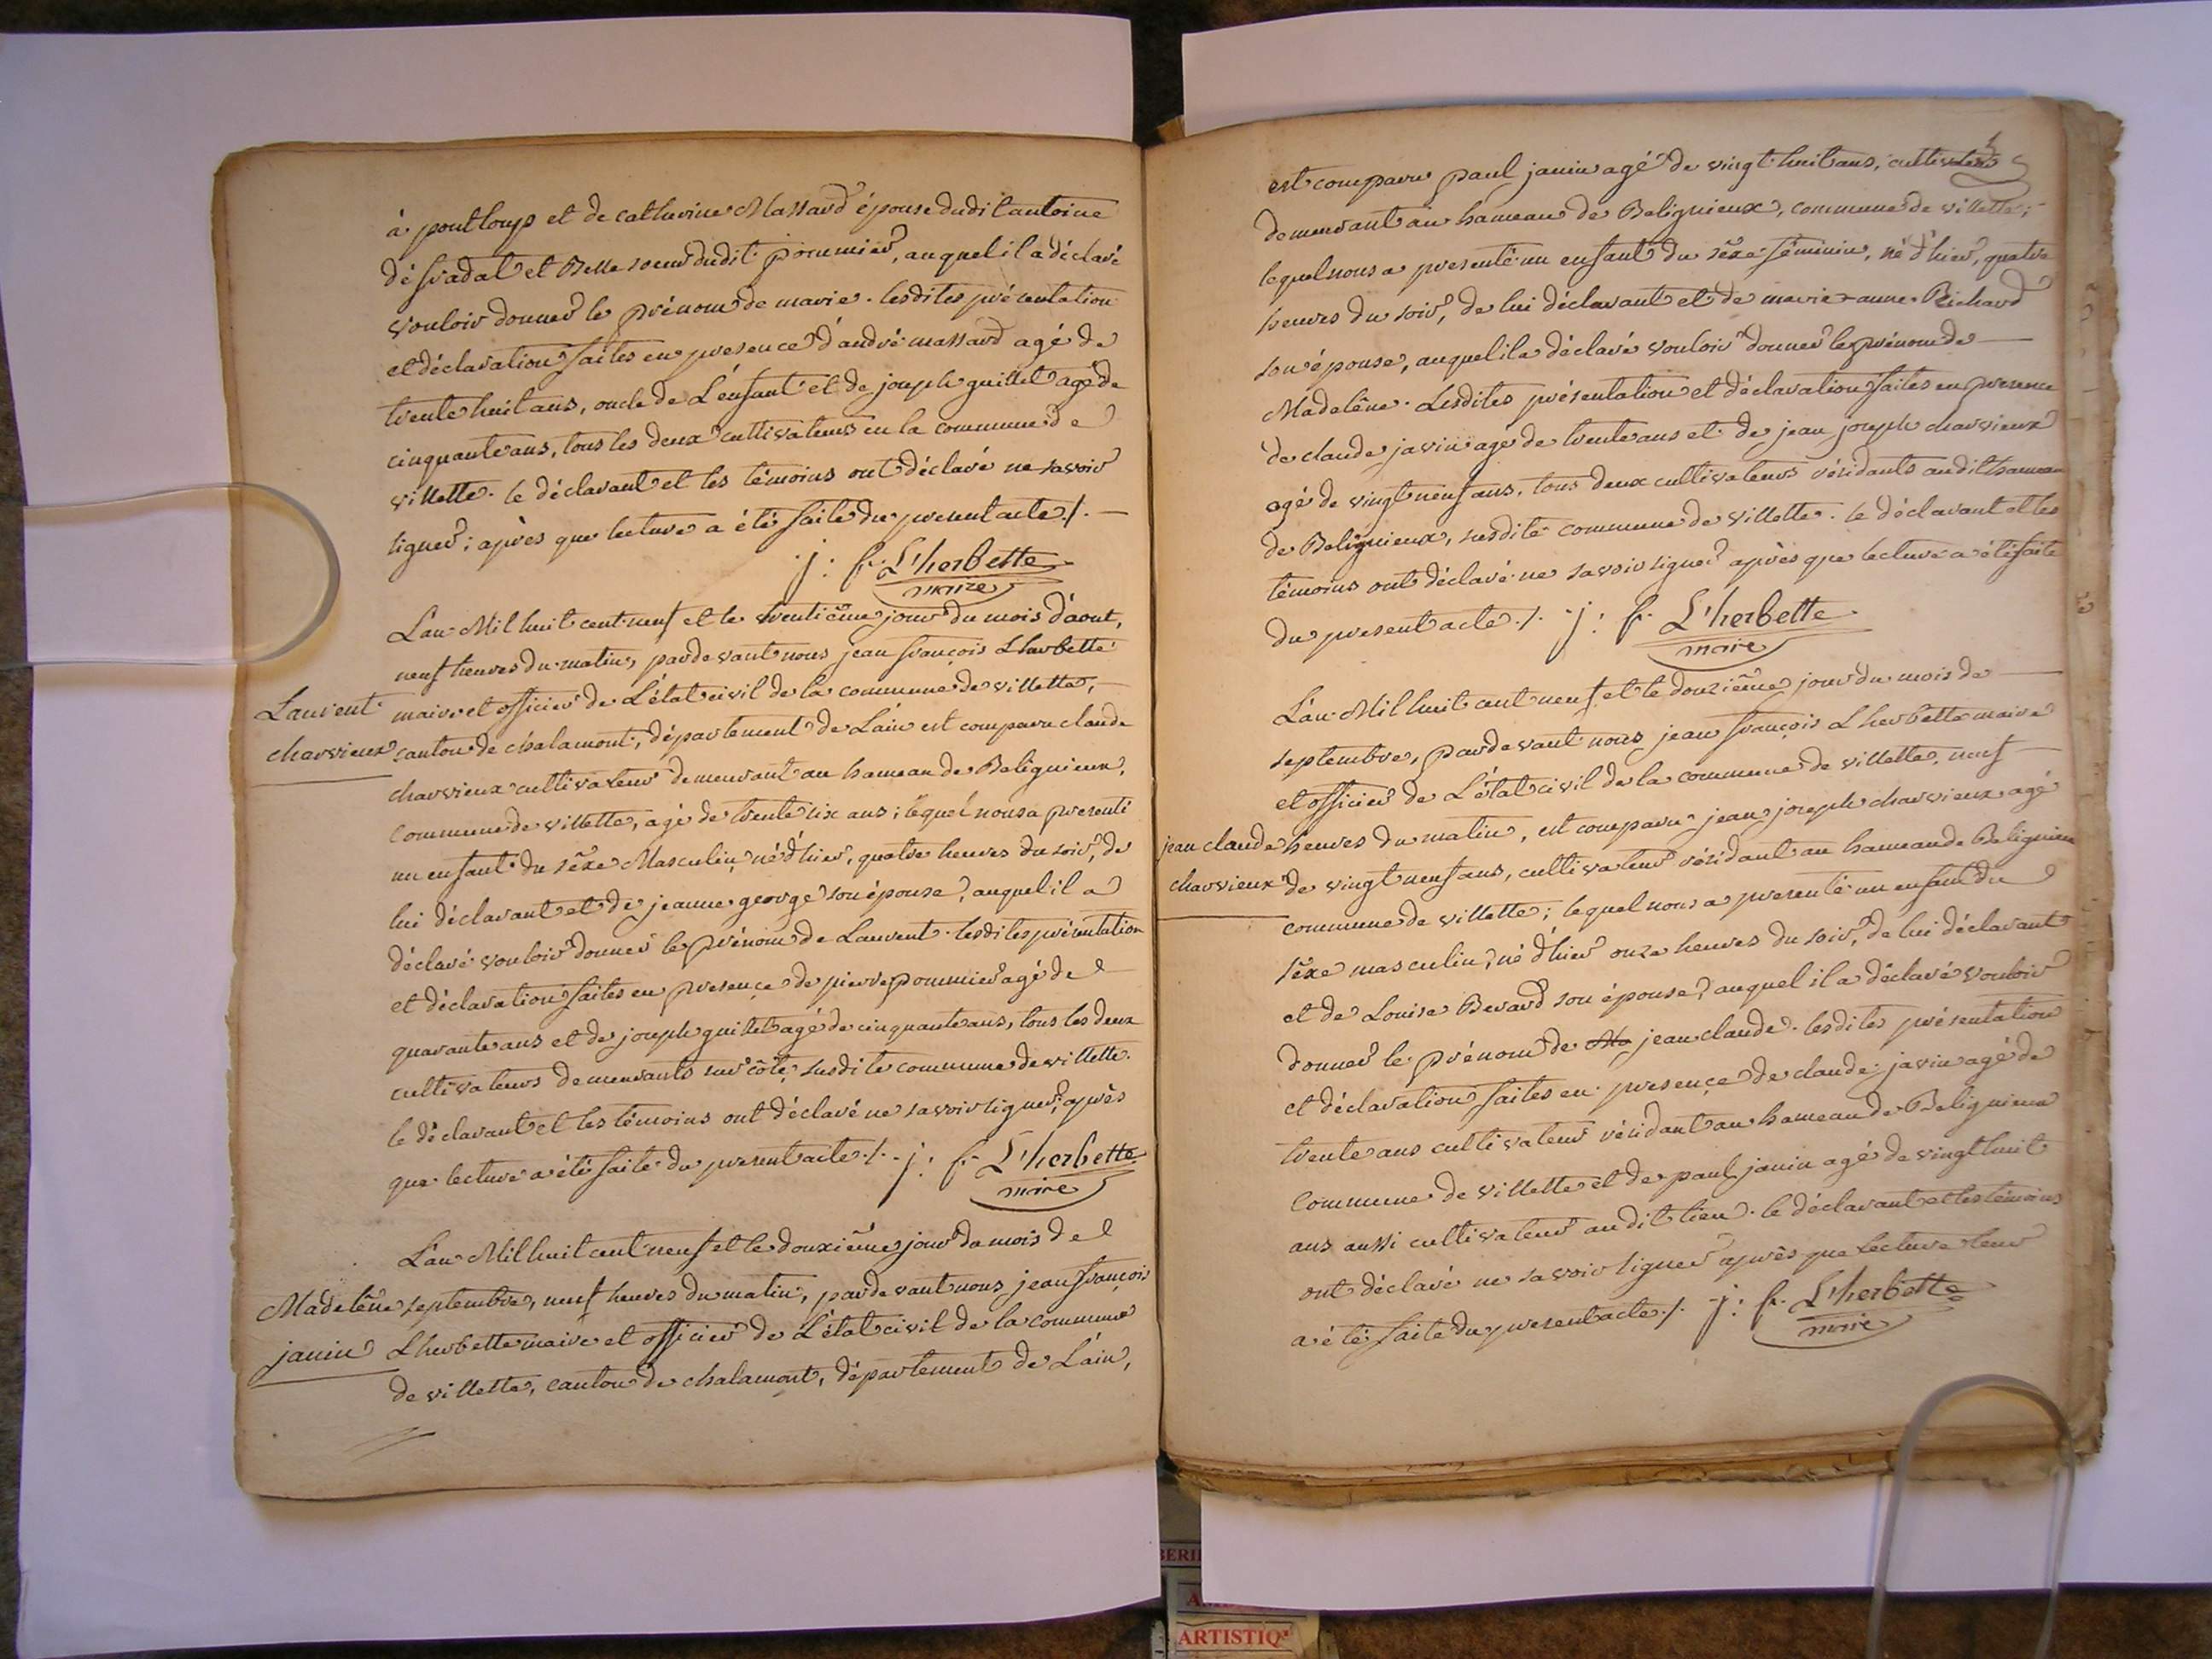 à pontloup et de catherine Massard épouse dudit antoine
défradat et Belle soeur dudit pommier, auquel il a déclaré
vouloir donner le prénom de marie. lesdites présentation
et déclaration faites en presence d'andré massard agé de
trente huit ans, oncle de L'enfant et de joseph guillet agé de
cinquante ans, tous les deux cultivateurs en la commune de
villette. le déclarant et les témoins ont déclaré ne savoir
signer; après que lecture a été faite du present acte ./. —
j: f. L'herbette
maire
L'an Mil huit cent neuf et le trentième jour du mois d'aout,
neuf heures du matin, pardevant nous jean françois Lherbette
Laurent
charvieux
maire et officier de L'état civil de la commune de villette, —
canton de chalamont, département de L'ain est comparu claude
charvieux cultivateur demeurant au hameau de Belignieux,
commune de villette, agé de trente six ans; lequel nous a presenté
un enfant du sexe Masculin, né d'hier, quatre heures du soir, de
lui déclarant et de jeanne george son épouse, auquel il a
déclaré vouloir donner le prénom de Laurent. lesdites présentation
et déclaration faites en presence de pierre pommier agé de
quarante ans et de joseph guillet agé de cinquante ans, tous les deux
cultivateurs demeurants sur côte, susdite commune de villette.
le déclarant et les témoins ont déclaré ne savoir signer; après
que lecture a été faite du present acte ./. j: f. L'herbette
maire
L'an Mil huit cent neuf et le douxième jour du mois de
Madelêne
janin
septembre, neuf heures du matin, pardevant nous jean françois
Lherbette maire et officier de L'état civil de la commune
de villette, canton de chalamont, département de L'ain,
est comparu paul janin agé de vingt huit ans, cultivateur
demeurant au hameau de Belignieux, commune de villette;
lequel nous a presenté un enfant du sexe féminin, né d'hier, quatre
heures du soir, de lui déclarant et de marie-anne Richard
son épouse, auquel il a déclaré vouloir donner le prénom de —
Madelêne. Lesdites présentation et déclaration faites en presence
de claude javin agé de trente ans et de jean joseph charvieux
agé de vingt neuf ans, tous deux cultivateurs résidants audit hameau
de Belignieux, susdite commune de villette. le déclarant et les
témoins ont déclaré ne savoir signer après que lecture a été faite
du present acte ./. j: f. L'herbette
maire
L'an Mil huit cent neuf et le douzième jour du mois de —
septembre, pardevant nous jean françois Lherbette maire
et officier de L'état civil de la commune de villette, neuf —
jean claude
charvieux
heures du matin, est comparu jean joseph charvieux agé
de vingt neuf ans, cultivateur résidant au hameau de Belignieux
commune de villette; lequel nous a presenté un enfant du
sexe masculin, né d'hier onze heures du soir, de lui déclarant
et de Louise Berard son épouse, auquel il a déclaré vouloir
donner le prénom de Ma jean claude. lesdites présentation
et déclaration faites en presence de claude javin agé de
trente ans cultivateur résidant au hameau de Belignieux
commune de villette et de paul janin agé de vingt huit
ans aussi cultivateur audit lieu. le déclarant et les témoins
ont déclaré ne savoir signer après que lecture leur
a été faite du present acte ./. j: f. L'herbette
maire
ARTISTIQ